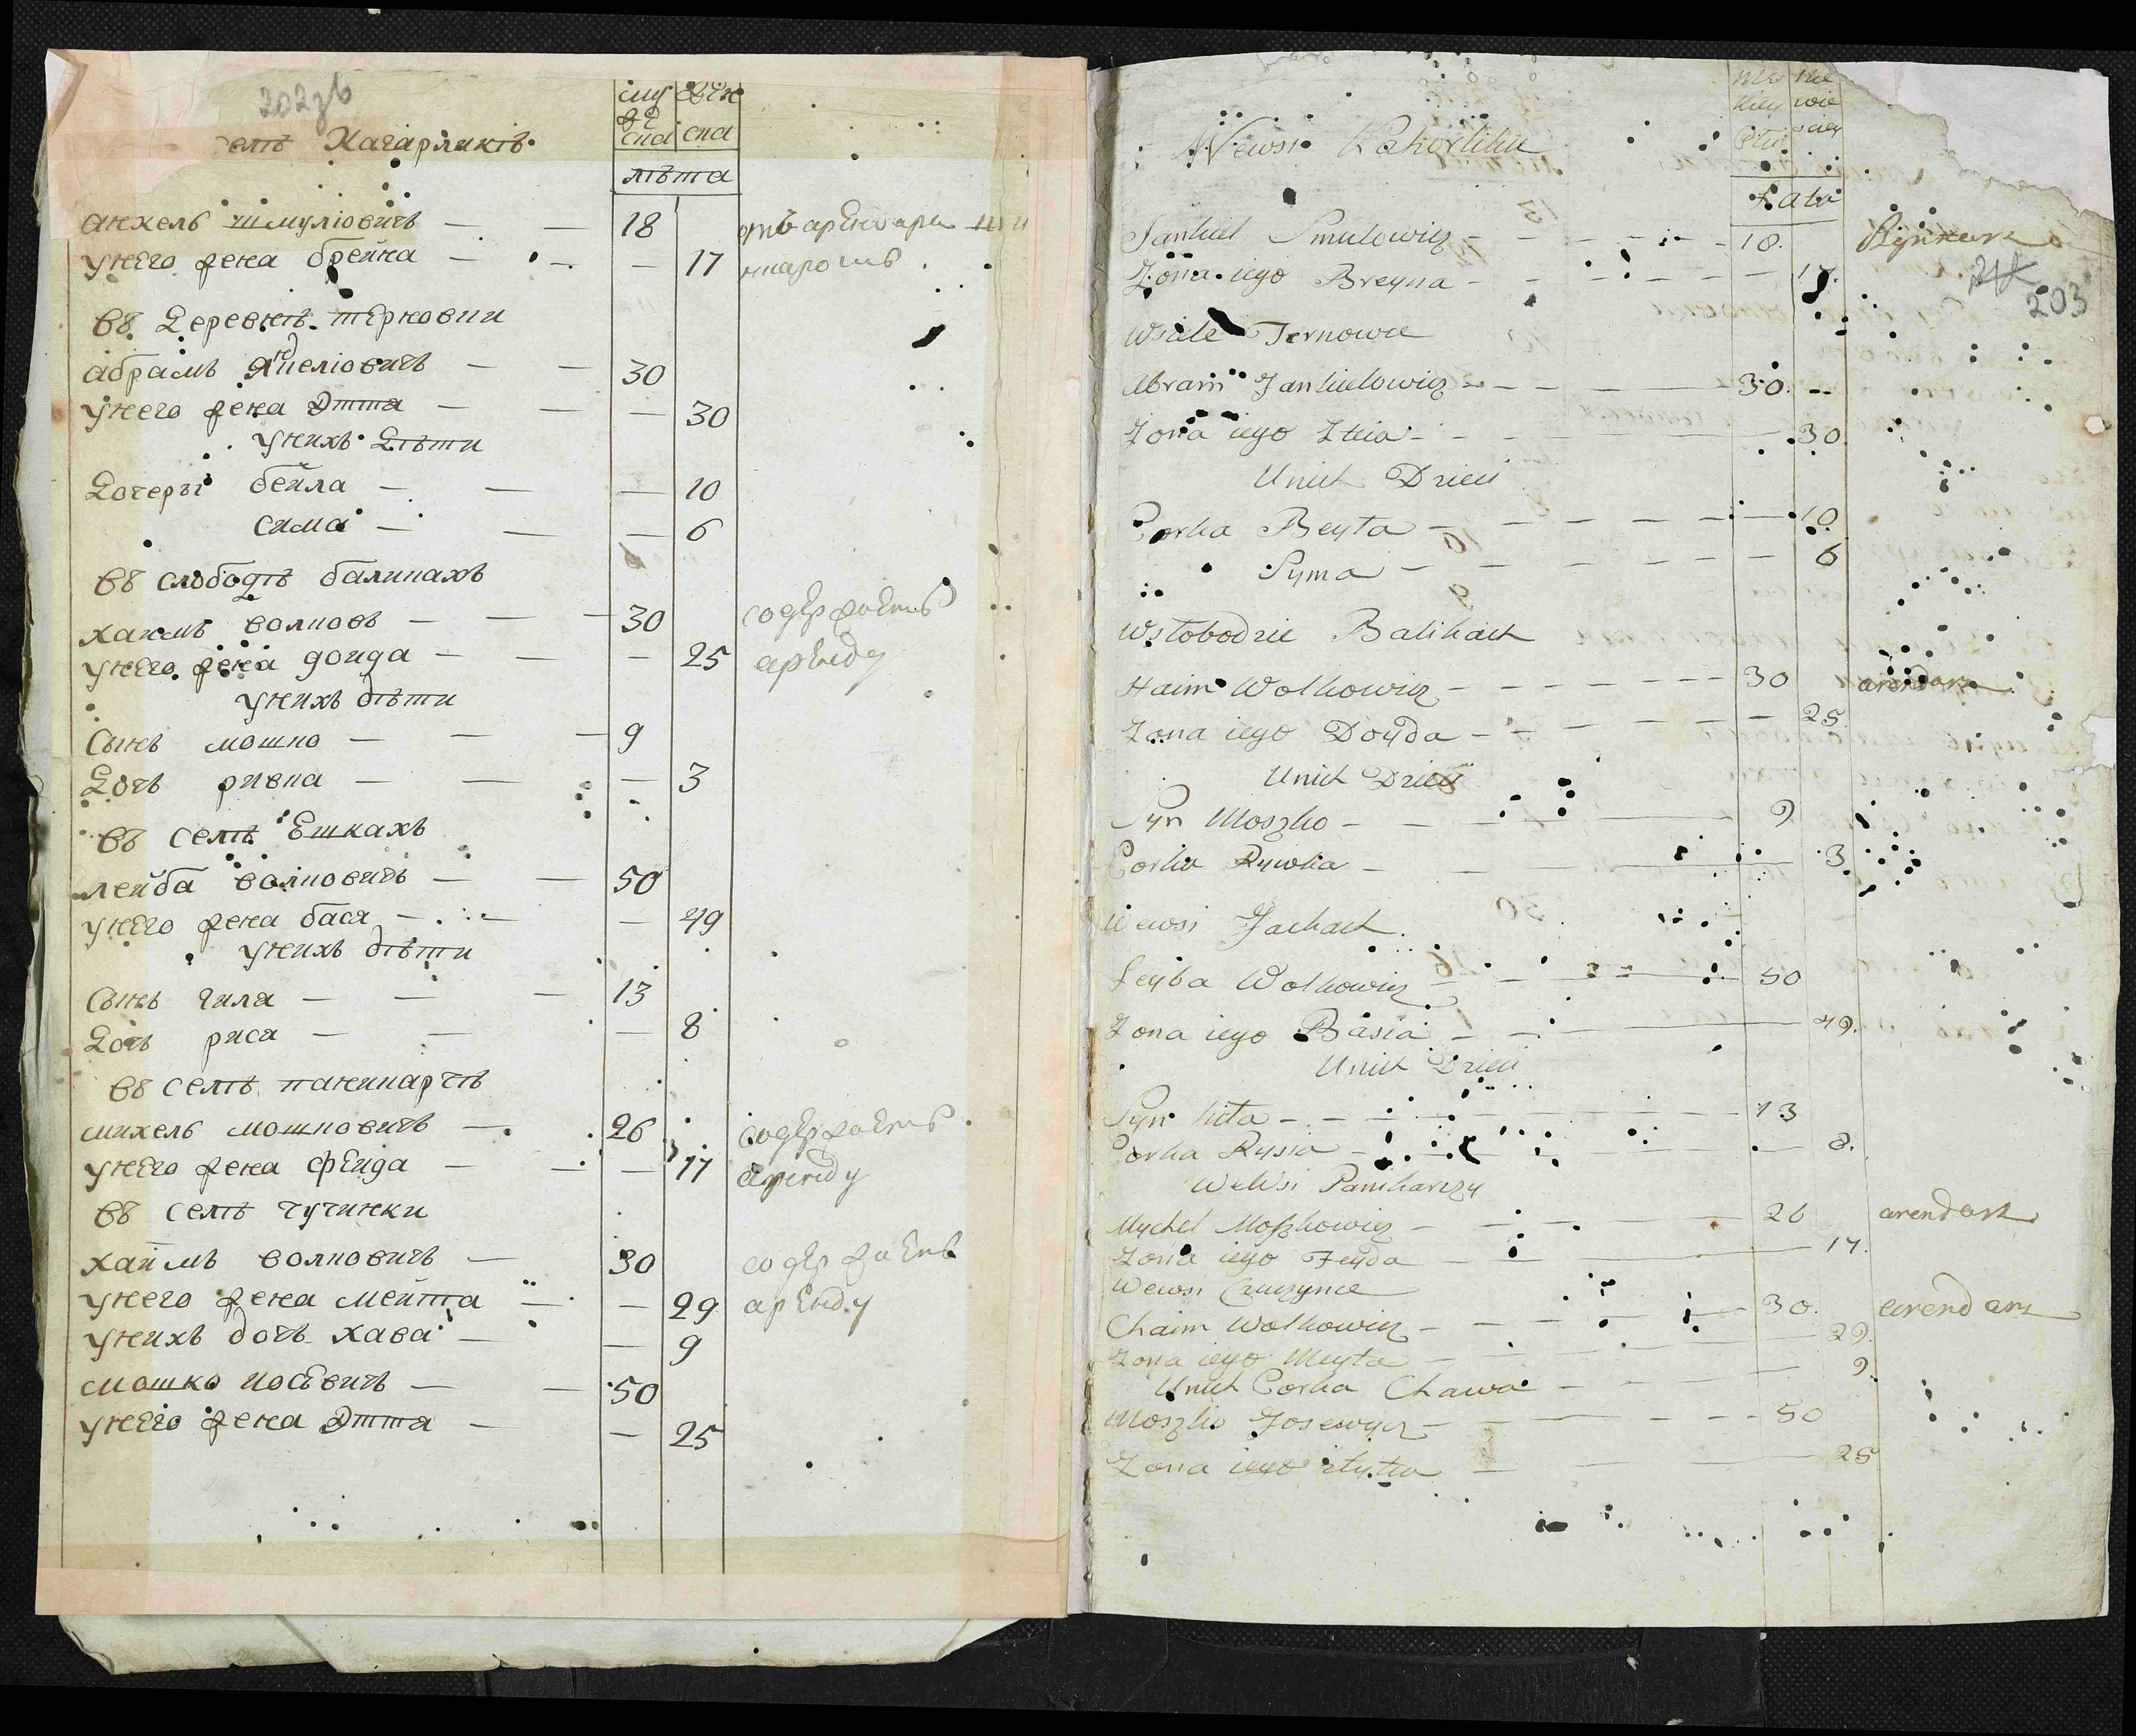 202зв
селѣ Кагарликѣ
му же ска
жен ска
лѣта
анкель шмуліовичъ — — 18
отъ арендара ши
унего жена брейна — — — 17
нкаротъ
въ Деревнѣ терновки
абрамъ янкеліовичъ — — 30
унего жена Этта — — — 30
унихъ Дѣти
Дочеры бейла — — — 10
сима — — — 6
въ слободѣ баликахъ
хаимъ волковъ — — 30
содержаетъ
унего жена дойда — — — 25
аренду
унихъ дѣти
Сынъ мошко — — 9
Дочъ ривка — — — 3
въ селѣ Ешкахъ
лейба волковичъ — — 50
унего жена бася — — — 49
унихъ дѣти
Сынъ гиля — — — 13
Дочъ рися — — — 8
въ селѣ паникарчѣ
михель мошковичъ — 26
содержаетъ
унего жена фейда — — — 17
аренду
въ селѣ чучинки
хаймъ волковичъ — 30
содержаетъ
унего жена мейта — — 29
аренду
унихъ дочъ хава — — 9
мошко иосевичъ — — 50
унего жена Этта — — 25
203
Wewsi Kahorliku
Lata
Jankiel Smulowicz — 18.
Szynkarz
Zona iego Breyna — 17.
Wsiele Ternowce
Abram Jankielowicz — 30.
Zona iego Itta — 30.
Unich Dzieci
Corka Beyła — 10.
Syma — 6
Wsłobodzie Balikach
Haim Wolkowicz — 30
arendarz
Zona iego Doyda — 25.
Unich Dzieci
Syn Moszko — 9
Corka Rywka — 3
Wewsi Jackach.
Leyba Wolkowicz — 50
Zona iego Basia — 49.
Unich Dzieci
Syn hila — 13
Corka Rysia — 8.
Wewsi Panikarczy
Mychel Moszkowicz — 26
arendarz
Zona iego Feyda — 17.
Wewsi Czuczynce
Chaim Wolkowicz — 30.
arendarz
Zona iego Meyta — 29.
Unich Corka Chawa — 9.
Moszko Josewicz — 50
Zona iego Etta — 25